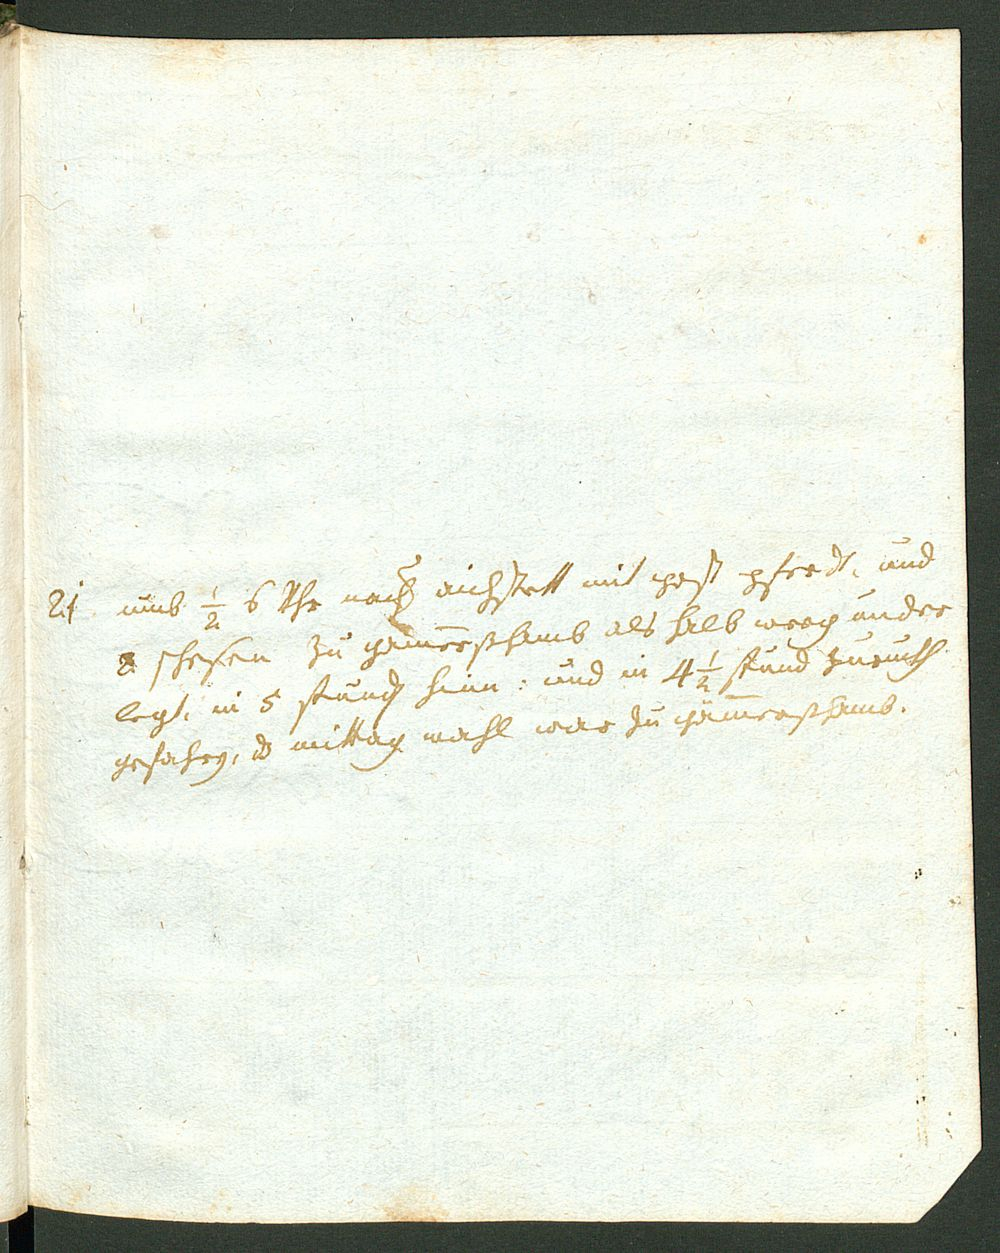 21. umb ½ 6 Uhr nach aichstett mit post pferdt, und
2 schesen zu gaimersshaimb als halb weeg under
legt, in 5 stund hinn: und in 4½ stund zuruckh
gefahren, dz mittag mahl war zu gaimersshaimb.